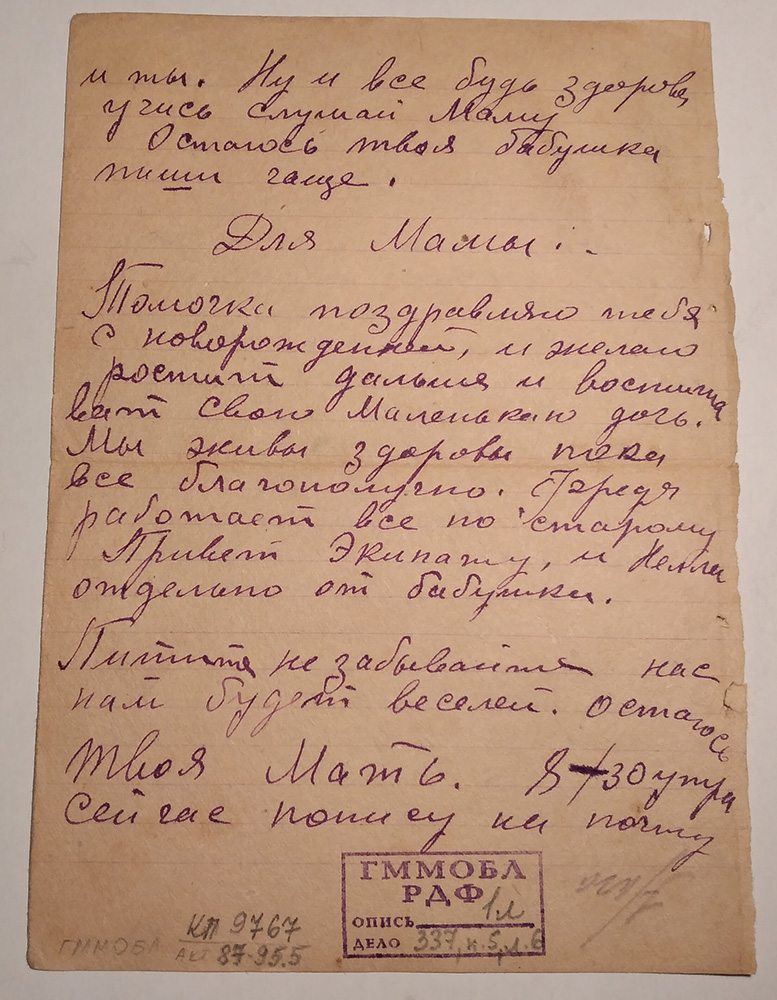 и ты. Ну и все будь здорова
учись слушай Маму
Остаюсь твоя бабушка
пиши чаще.
Для Мамы:.
Томочка поздравляю тебя
с новорожденной, и желаю
ростит дальше и воспита
ват свою Маленькаю дочь.
Мы живы здоровы пока
все благополучно.
работает все по старому
Привет Экипажу, и Нелли
отдельно от бабушки.
Пишите не забывайте нас
нам будет веселей. Остаюсь
твоя Мать. 8 30 утра
Сейчас понису на почту
ГММОБЛ
РДФ
ОПИСЬ 1л
ДЕЛО 337, к.5, л.6
ГММОБЛ КП 9767
Акт 87-95.5